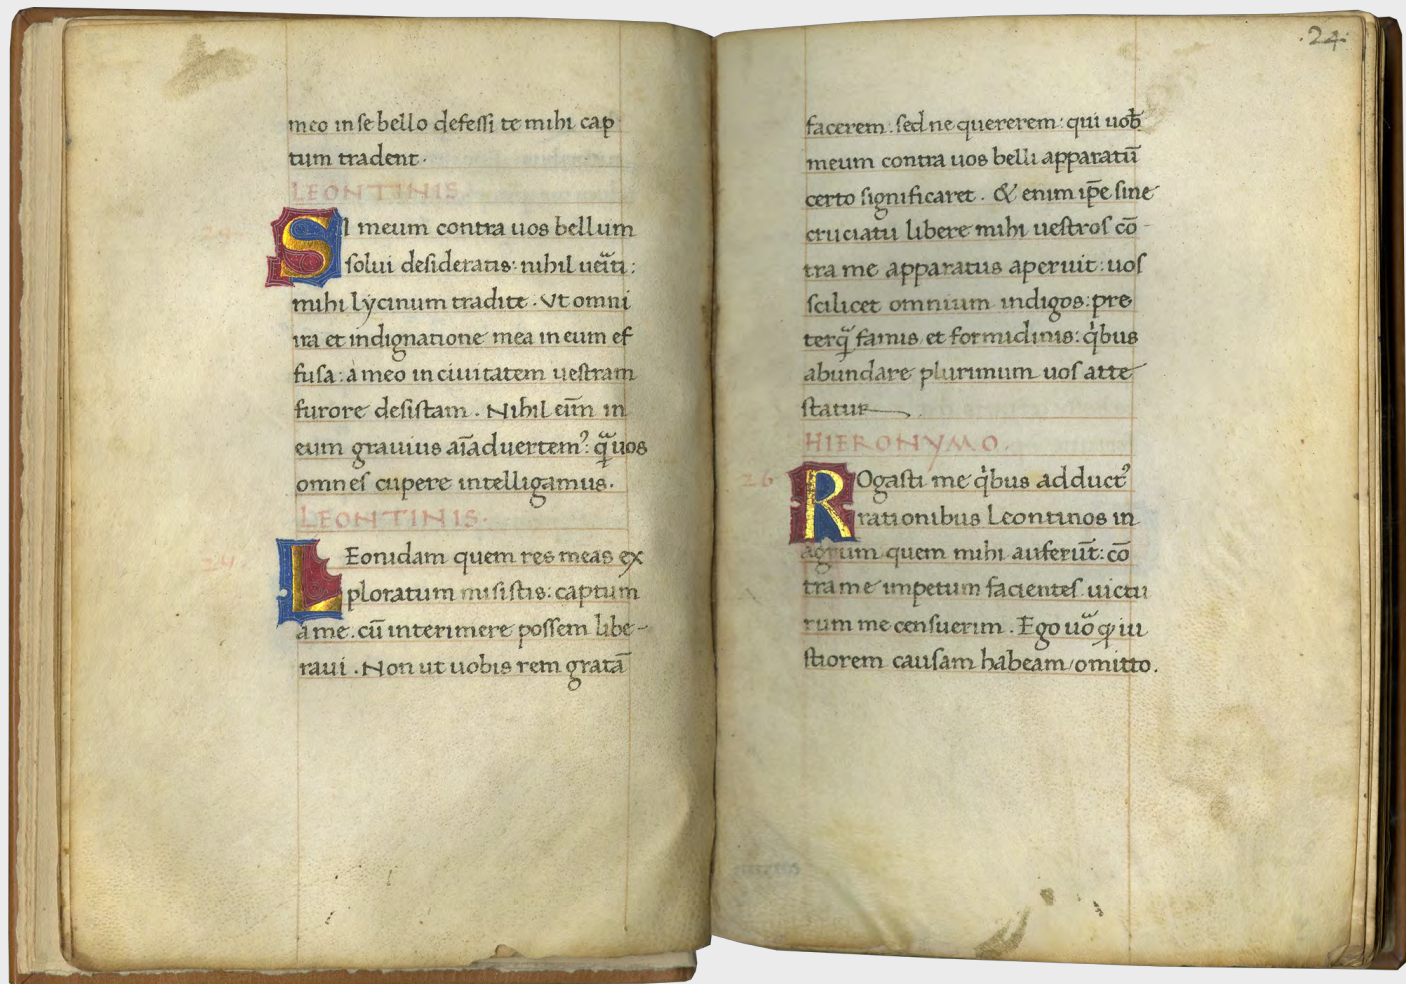 meo in se bello defessi te mihi cap
tum tradent.
LEONTINIS.
SI meum contra uos bellum
solui desideratis: nihil uẽti:
mihi lẏcinum tradite. Vt omni
ira et indignatione mea in eum ef
fusa: a meo in ciuitatem uestram
furore desistam. Nihil eim̃ in
eum grauius aĩaduertemꝰ: qͣ̃uos
omnes cupere intelligamus.
LEONTINIS.
24.
LEonidam quem res meas ex
ploratum misistis: captum
a me. cũ interimere possem libe-
raui. Non ut uobis rem gratã
.24.
facerem: sed ne quererem: qui uob̃
meum contra uos belli apparatũ
certo significaret. & enim ip̃e sine
cruciatu libere mihi uestros cõ-
tra me apparatus aperuit: uos
scilicet omnium indigos: pre
terqͣ̃ famis et formidinis: qͥbus
abundare plurimum uos atte
statur
HIERONYMO.
26
ROgasti me qͥbus adductꝰ
rationibus Leontinos in
agrum quem mihi auferũt: cõ
tra me impetum facientes uictu
rum me censuerim. Ego uͦo ꝙ iu
stiorem causam habeam/omitto.